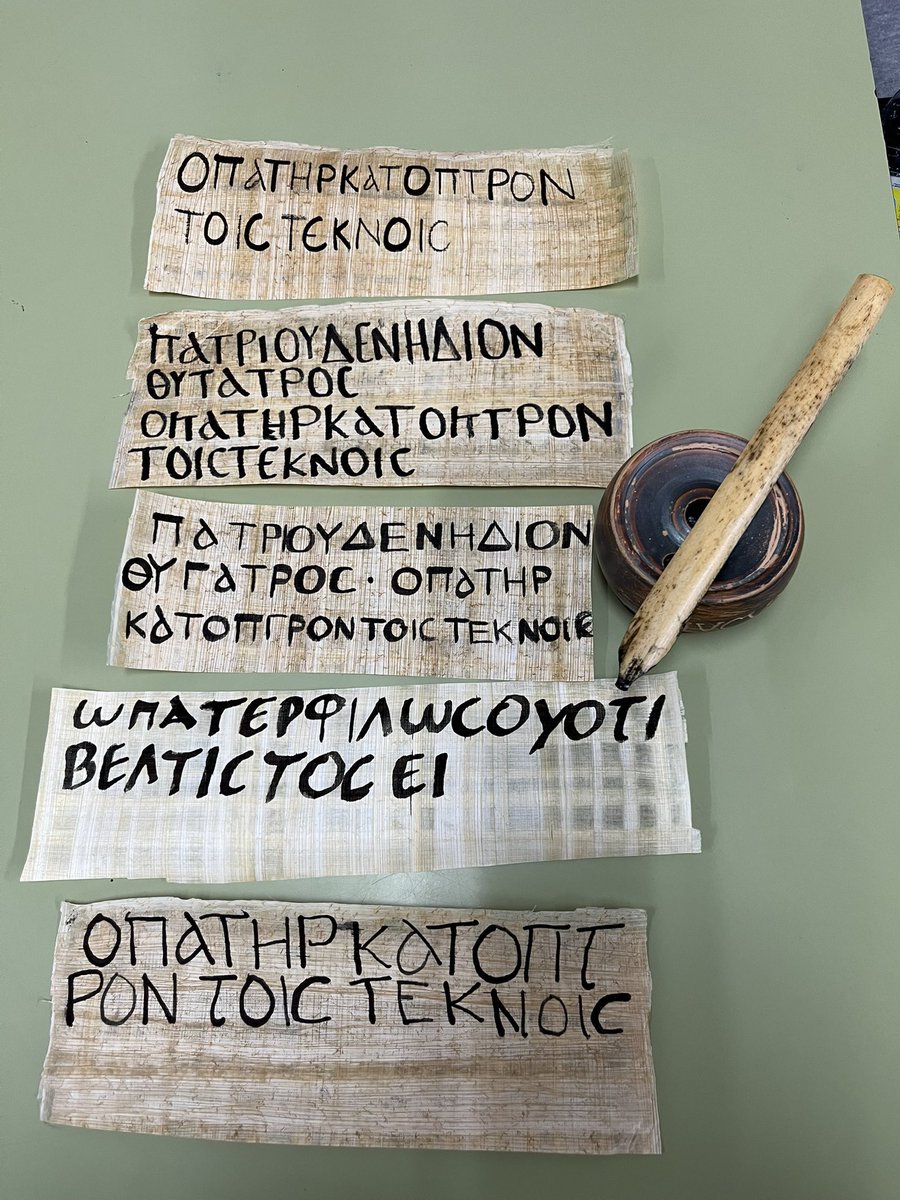 ΟΠΑΤΗΡΚΑΤΟΠΤΡΟΝ
ΤΟΙϹ ΤΕΚΝΟΙϹ
ΠΑΤΡΙΟΥΔΕΝΗΔΙΟΝ
ΘΥΤΑΤΡΟϹ
ΟΠΑΤΗΡΚΑΤΟΠΤΡΟΝ
ΤΟΙϹΤΕΚΝΟΙϹ
ΠΑΤΡΙΟΥΔΕΝΗΔΙΟΝ
ΘΥΓΑΤΡΟϹ · ΟΠΑΤΗΡ
ΚΑΤΟΠΓΡΟΝΤΟΙϹ ΤΕΚΝΟΙϹ
ωΠΑΤΕΡΦΙΛωϹΟΥΟΤΙ
ΒΕΛΤΙϹΤΟϹ ΕΙ
ΟΠΑΤΗΡ ΚΑΤΟΠΤ
ΡΟΝ ΤΟΙϹ ΤΕΚΝΟΙϹ